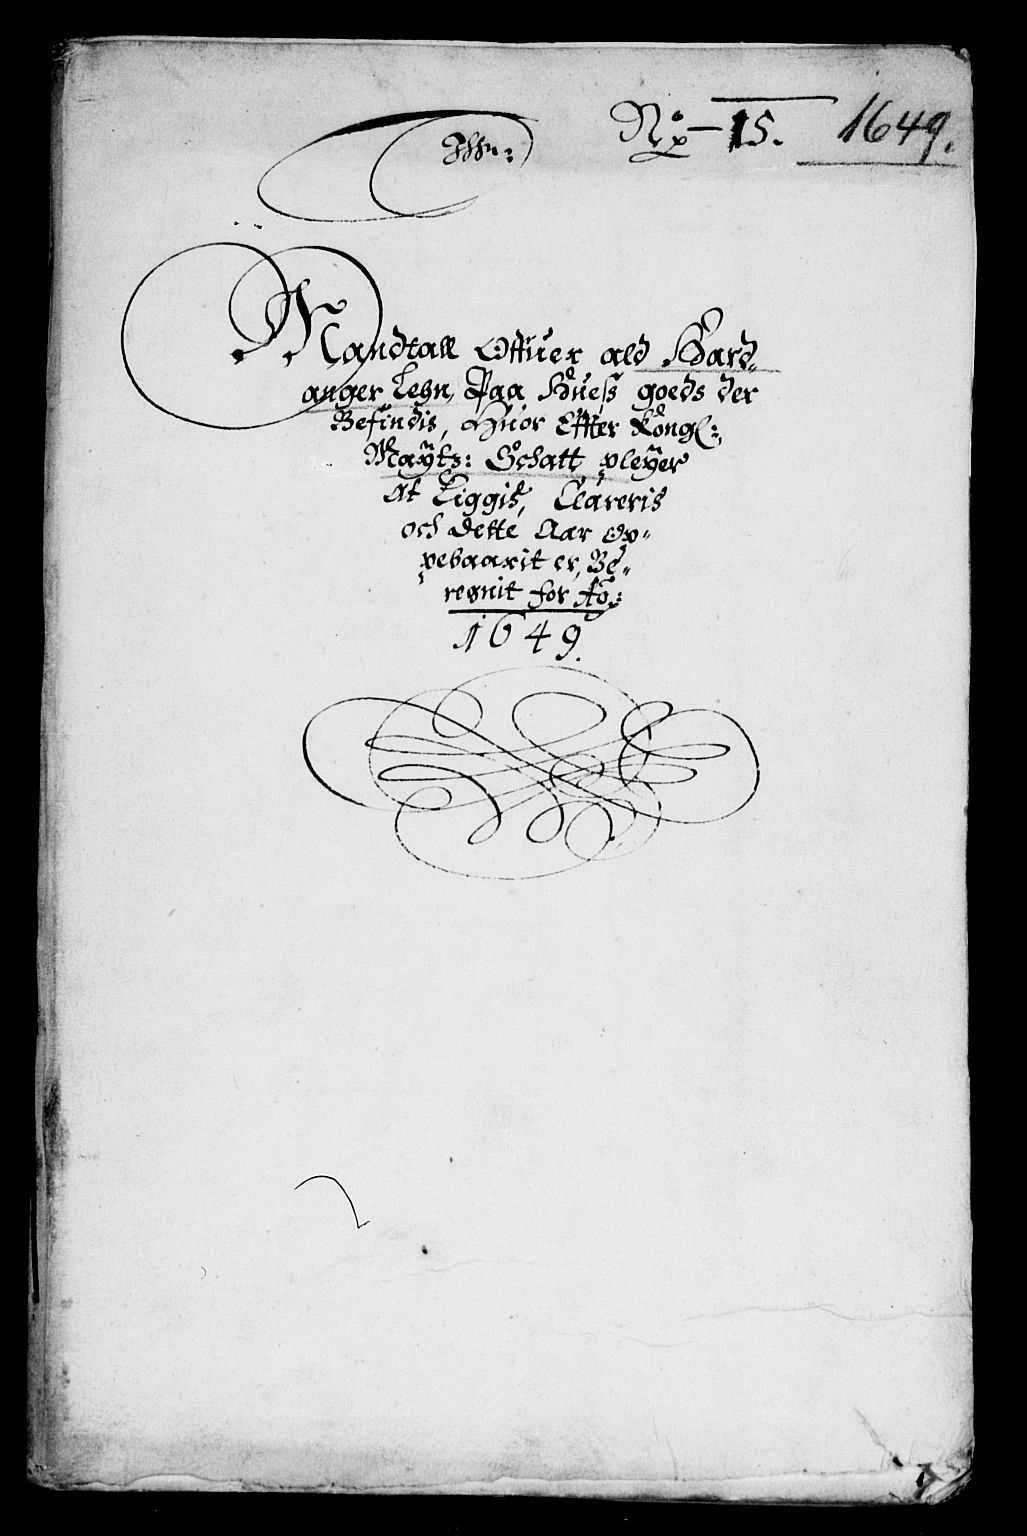 No 15. 1649.
Mandtall Offuer ald Hard
anger Lehn, Paa Hueß goeds der
Befindis, Huor Effter Kongl:
Mayts: Schatt pleyer
at Liggis, Clareris
och dette Aar op-
pebaarit er, Be-
regnit for Ao:
1649.